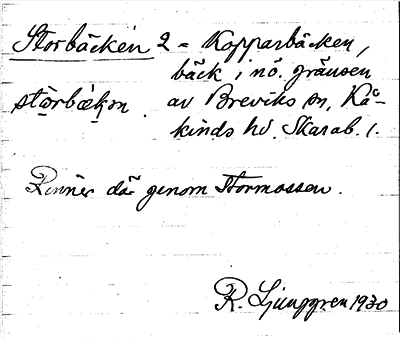 Storbäcken 2 = Kopparbäcken,
bäck i nö. gränsen
stòrbæ̀kən. av Breviks sn, Kå-
kinds hd. Skarab. l.
Rinner där genom Stormossen.
R. Ljunggren 1930